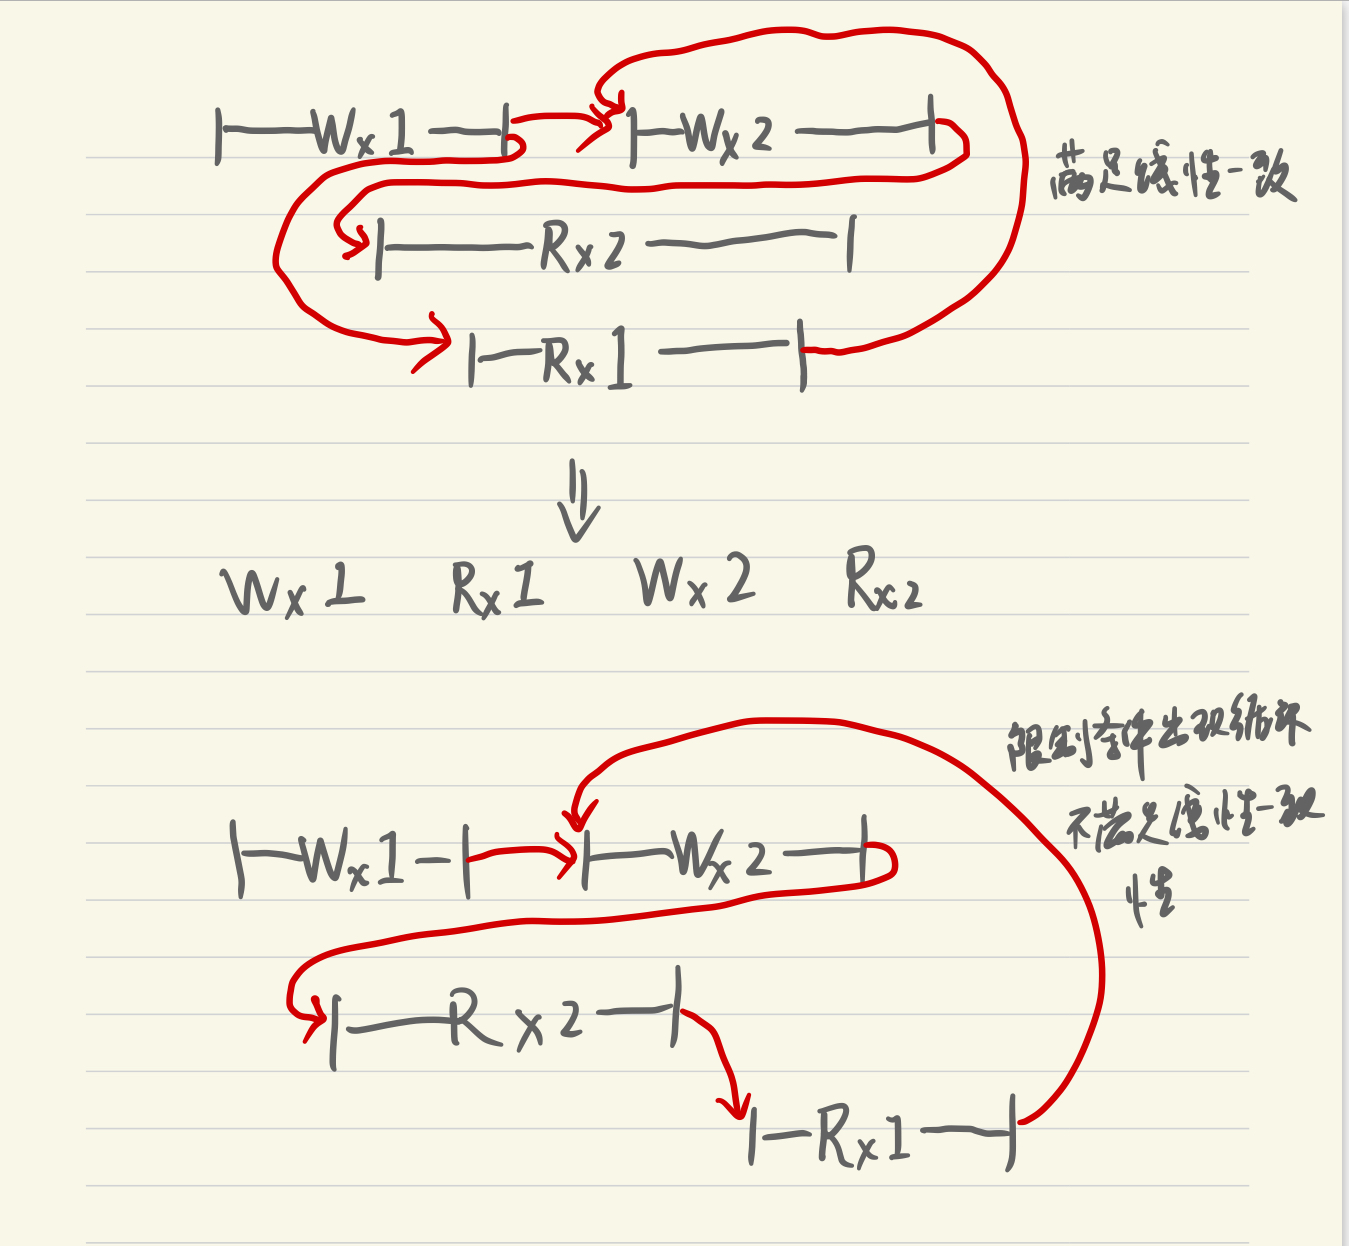 |—Wx1—| |—Wx2—|
满足线性一致
|—Rx2—|
|—Rx1—|
Wx1 Rx1 Wx2 Rx2
限制条件出现循环
不满足线性一致
性
|—Wx1—| |—Wx2—|
|—Rx2—|
|—Rx1—|